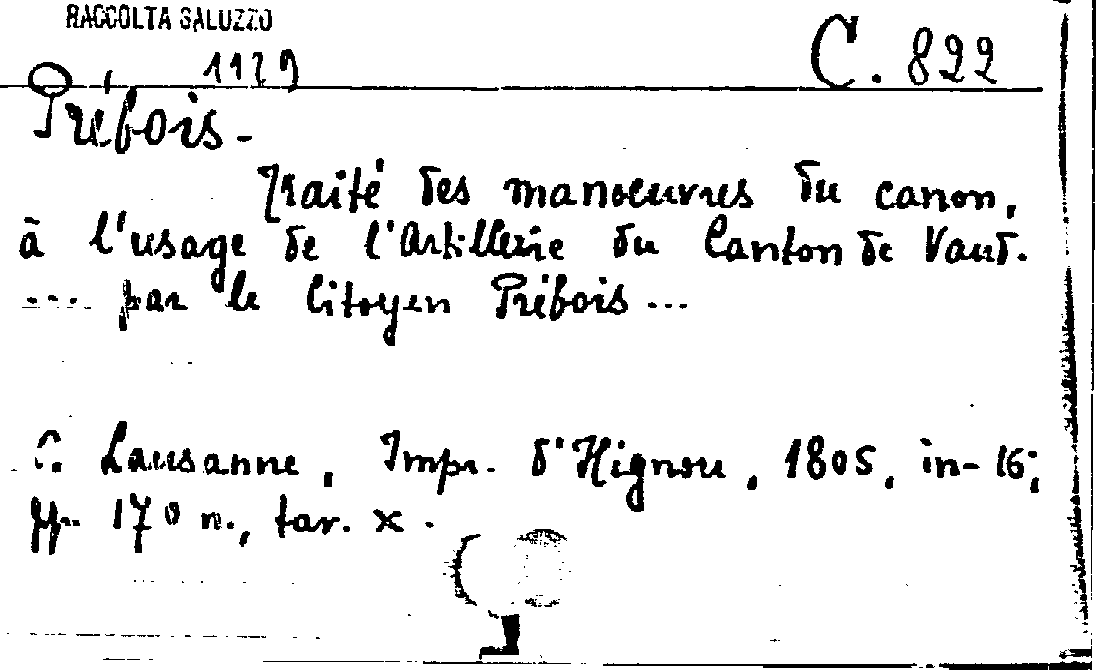 RACCOLTA SALUZZO
1129 C. 822
Prébois -
Traité des manoeuvres du canon,
à l'usage de l'Artillerie du Canton de Vaud.
... par le Citoyen Prébois ...
C. Lausanne, Impr. d'Hignou, 1805, in-16;
pp. 170 n., tav. X.